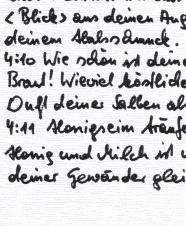 < Blick> aus deinen Aug
deinem Halsschmuck.
4:10 Wie schön ist deine
Braut! Wieviel köstliche
Duft deiner Salben al
4:11 Honigseim träuf
Honig und Milch ist u
deiner Gewänder glei